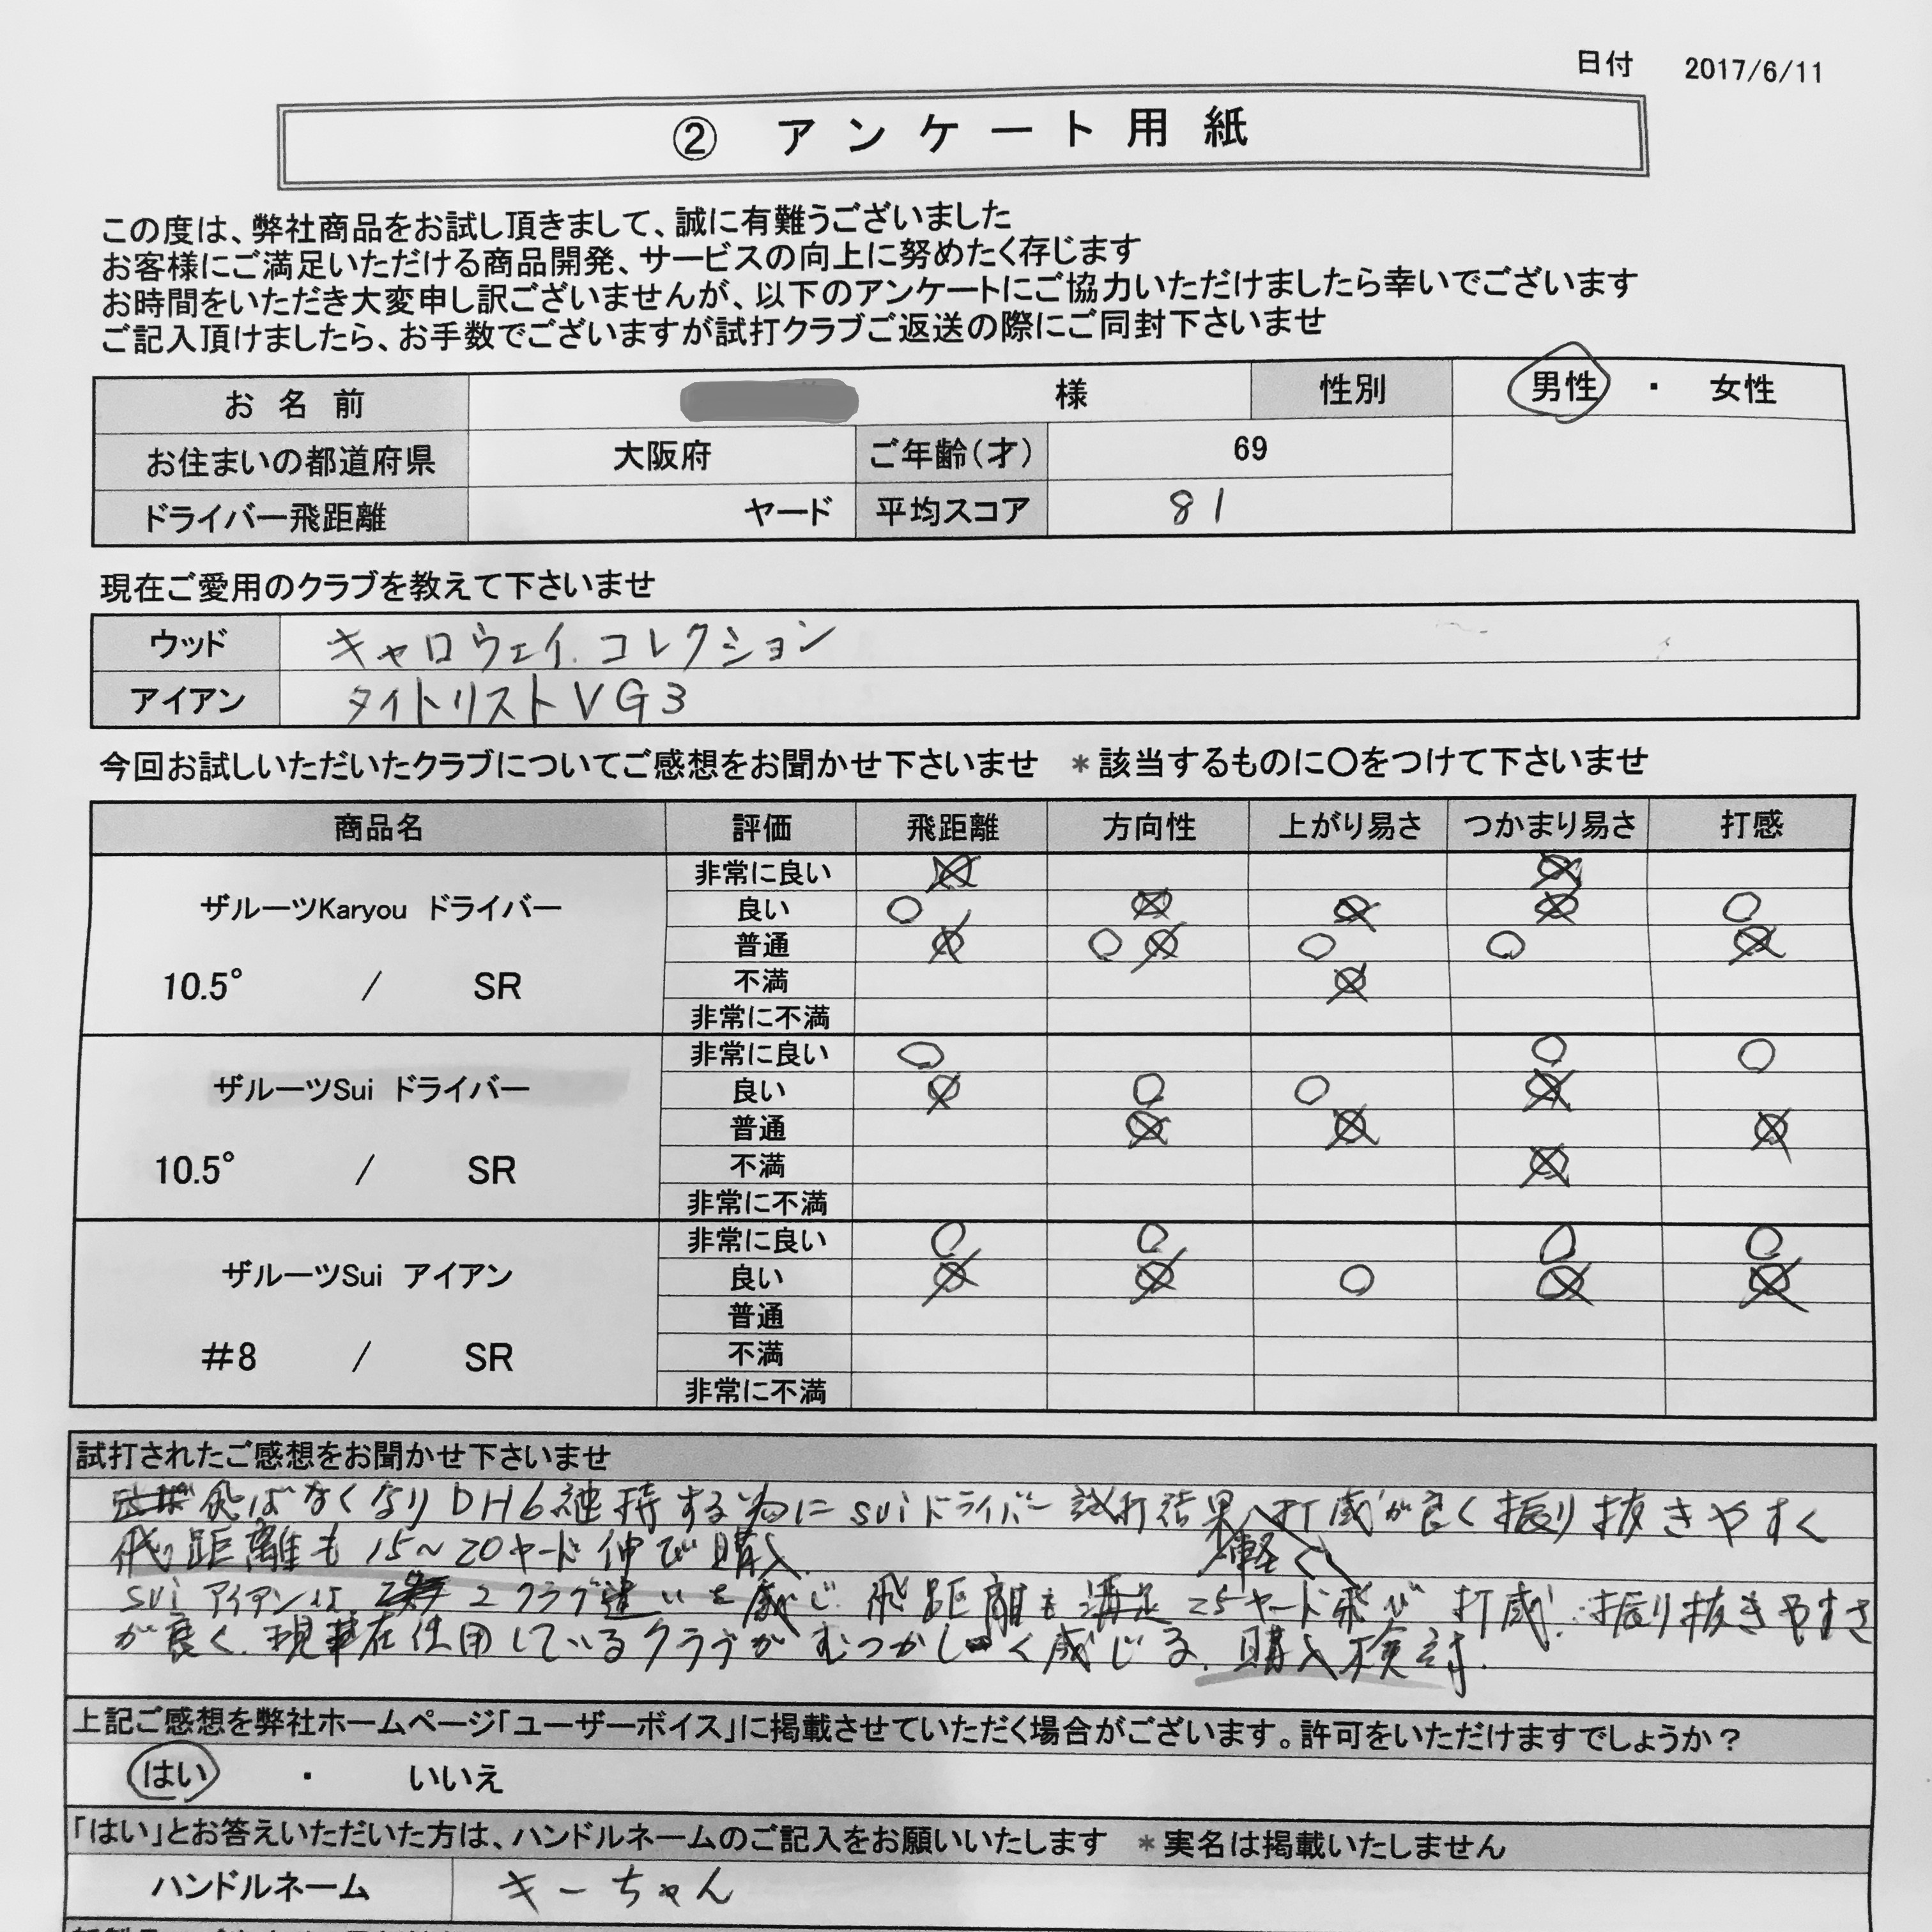 日付 2017/6/11
② アンケート用紙
この度は、弊社商品をお試し頂きまして、誠に有難うございました
お客様にご満足いただける商品開発、サービスの向上に努めたく存じます
お時間をいただき大変申し訳ございませんが、以下のアンケートにご協力いただけましたら幸いでございます
ご記入頂けましたら、お手数でございますが試打クラブご返送の際にご同封下さいませ
お名前 様 性別 男性 ・ 女性
お住まいの都道府県 大阪府 ご年齢(才) 69
ドライバー飛距離 ヤード 平均スコア 81
現在ご愛用のクラブを教えて下さいませ
ウッド キャロウェイ.コレクション
アイアン タイトリストVG3
今回お試しいただいたクラブについてご感想をお聞かせ下さいませ *該当するものに〇をつけて下さいませ
商品名 評価 飛距離 方向性 上がり易さ つかまり易さ 打感
ザルーツKaryou ドライバー
10.5° / SR
非常に良い
良い
普通
不満
非常に不満
ザルーツSui ドライバー
10.5° / SR
非常に良い
良い
普通
不満
非常に不満
ザルーツSui アイアン
#8 / SR
非常に良い
良い
普通
不満
非常に不満
試打されたご感想をお聞かせ下さいませ
飛ばなくなりDH6維持する為にsuiドライバー試打結果、軽く打感が良く振り抜きやすく
飛距離も15~20ヤード伸び購入.
suiアイアンは 2クラブ違いを感じ 飛距離も満足 25ヤード飛び 打感.振り抜きやすさ
が良く.現在使用しているクラブがむつかしく感じる.購入検討.
上記ご感想を弊社ホームページ「ユーザーボイス」に掲載させていただく場合がございます。許可をいただけますでしょうか?
はい ・ いいえ
「はい」とお答えいただいた方は、ハンドルネームのご記入をお願いいたします *実名は掲載いたしません
ハンドルネーム キーちゃん